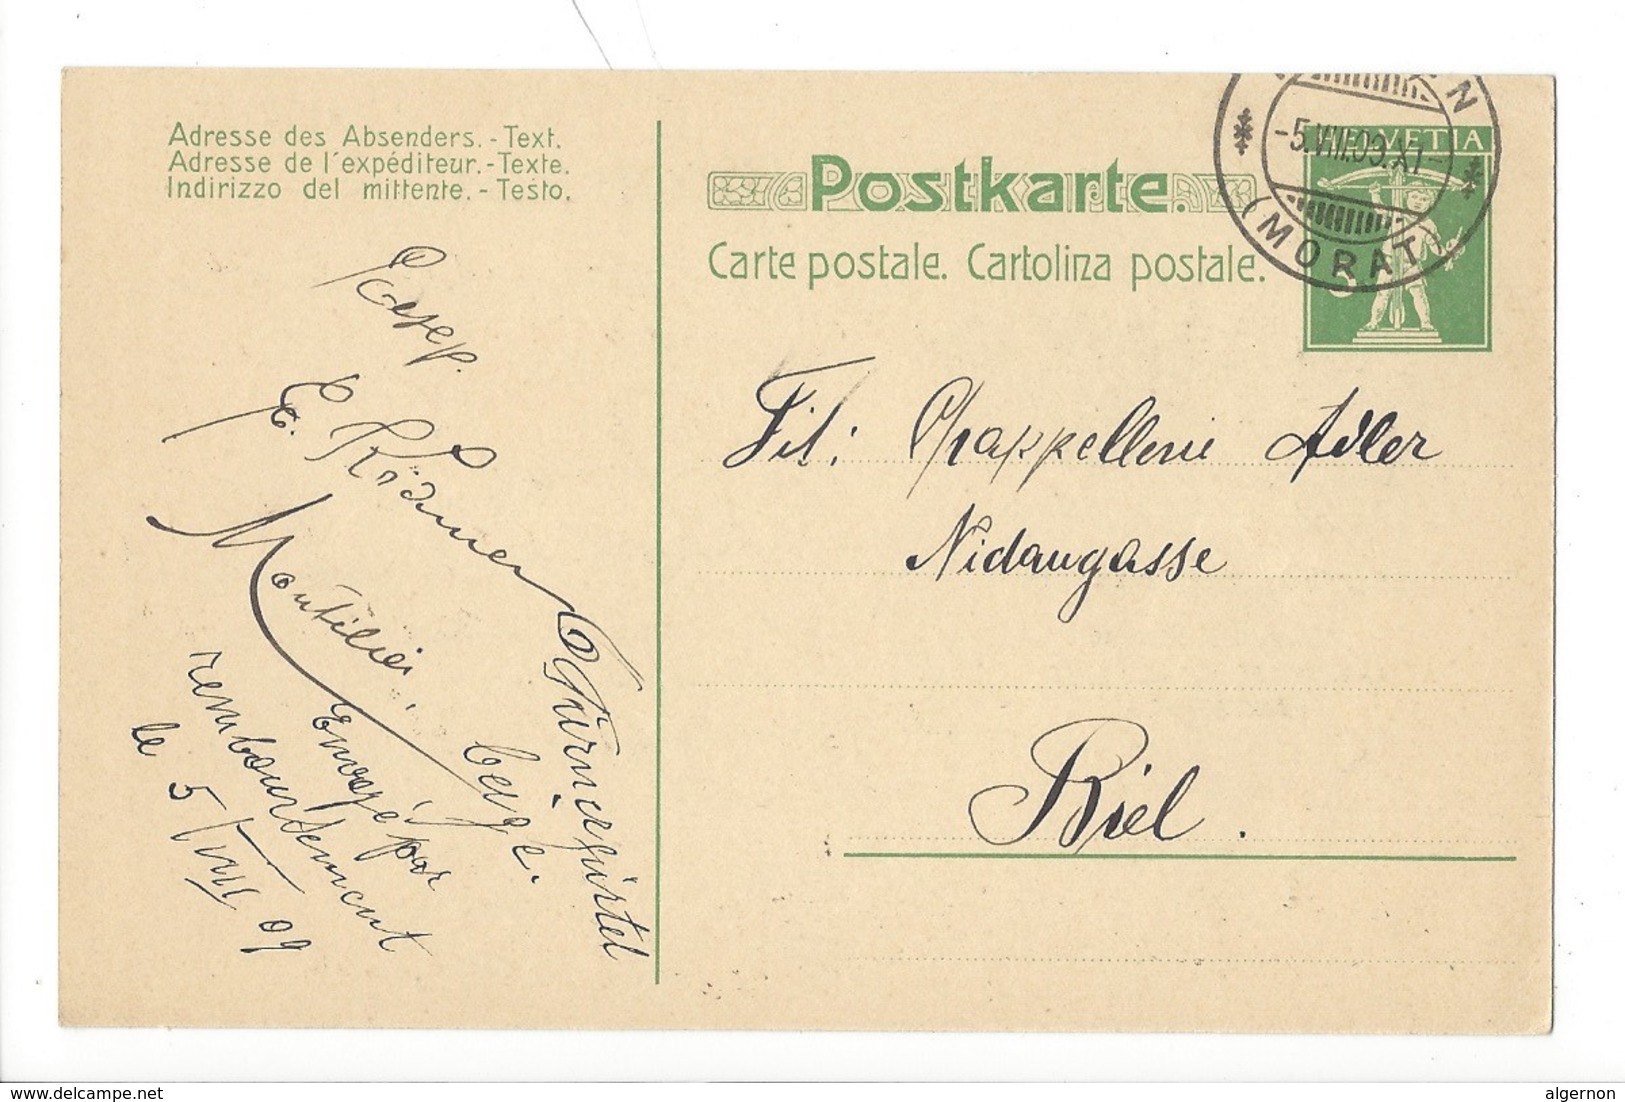 Adresse des Absenders.-Text.
Adresse de l'expéditeur.-Texte.
Indirizzo del mittente.-Testo.
Postkarte.
Carte postale. Cartolina postale.
HELVETIA
-5.VIII.09.XI-
(MORAT)
N
5
Fil: Chappellerie Adler
Nidaugasse
Biel.
E. Krämer
Montilier.
Turnergürtel
beige.
Envoyé par
remboursement
le 5/VIII 09
delcampe.net
algernon